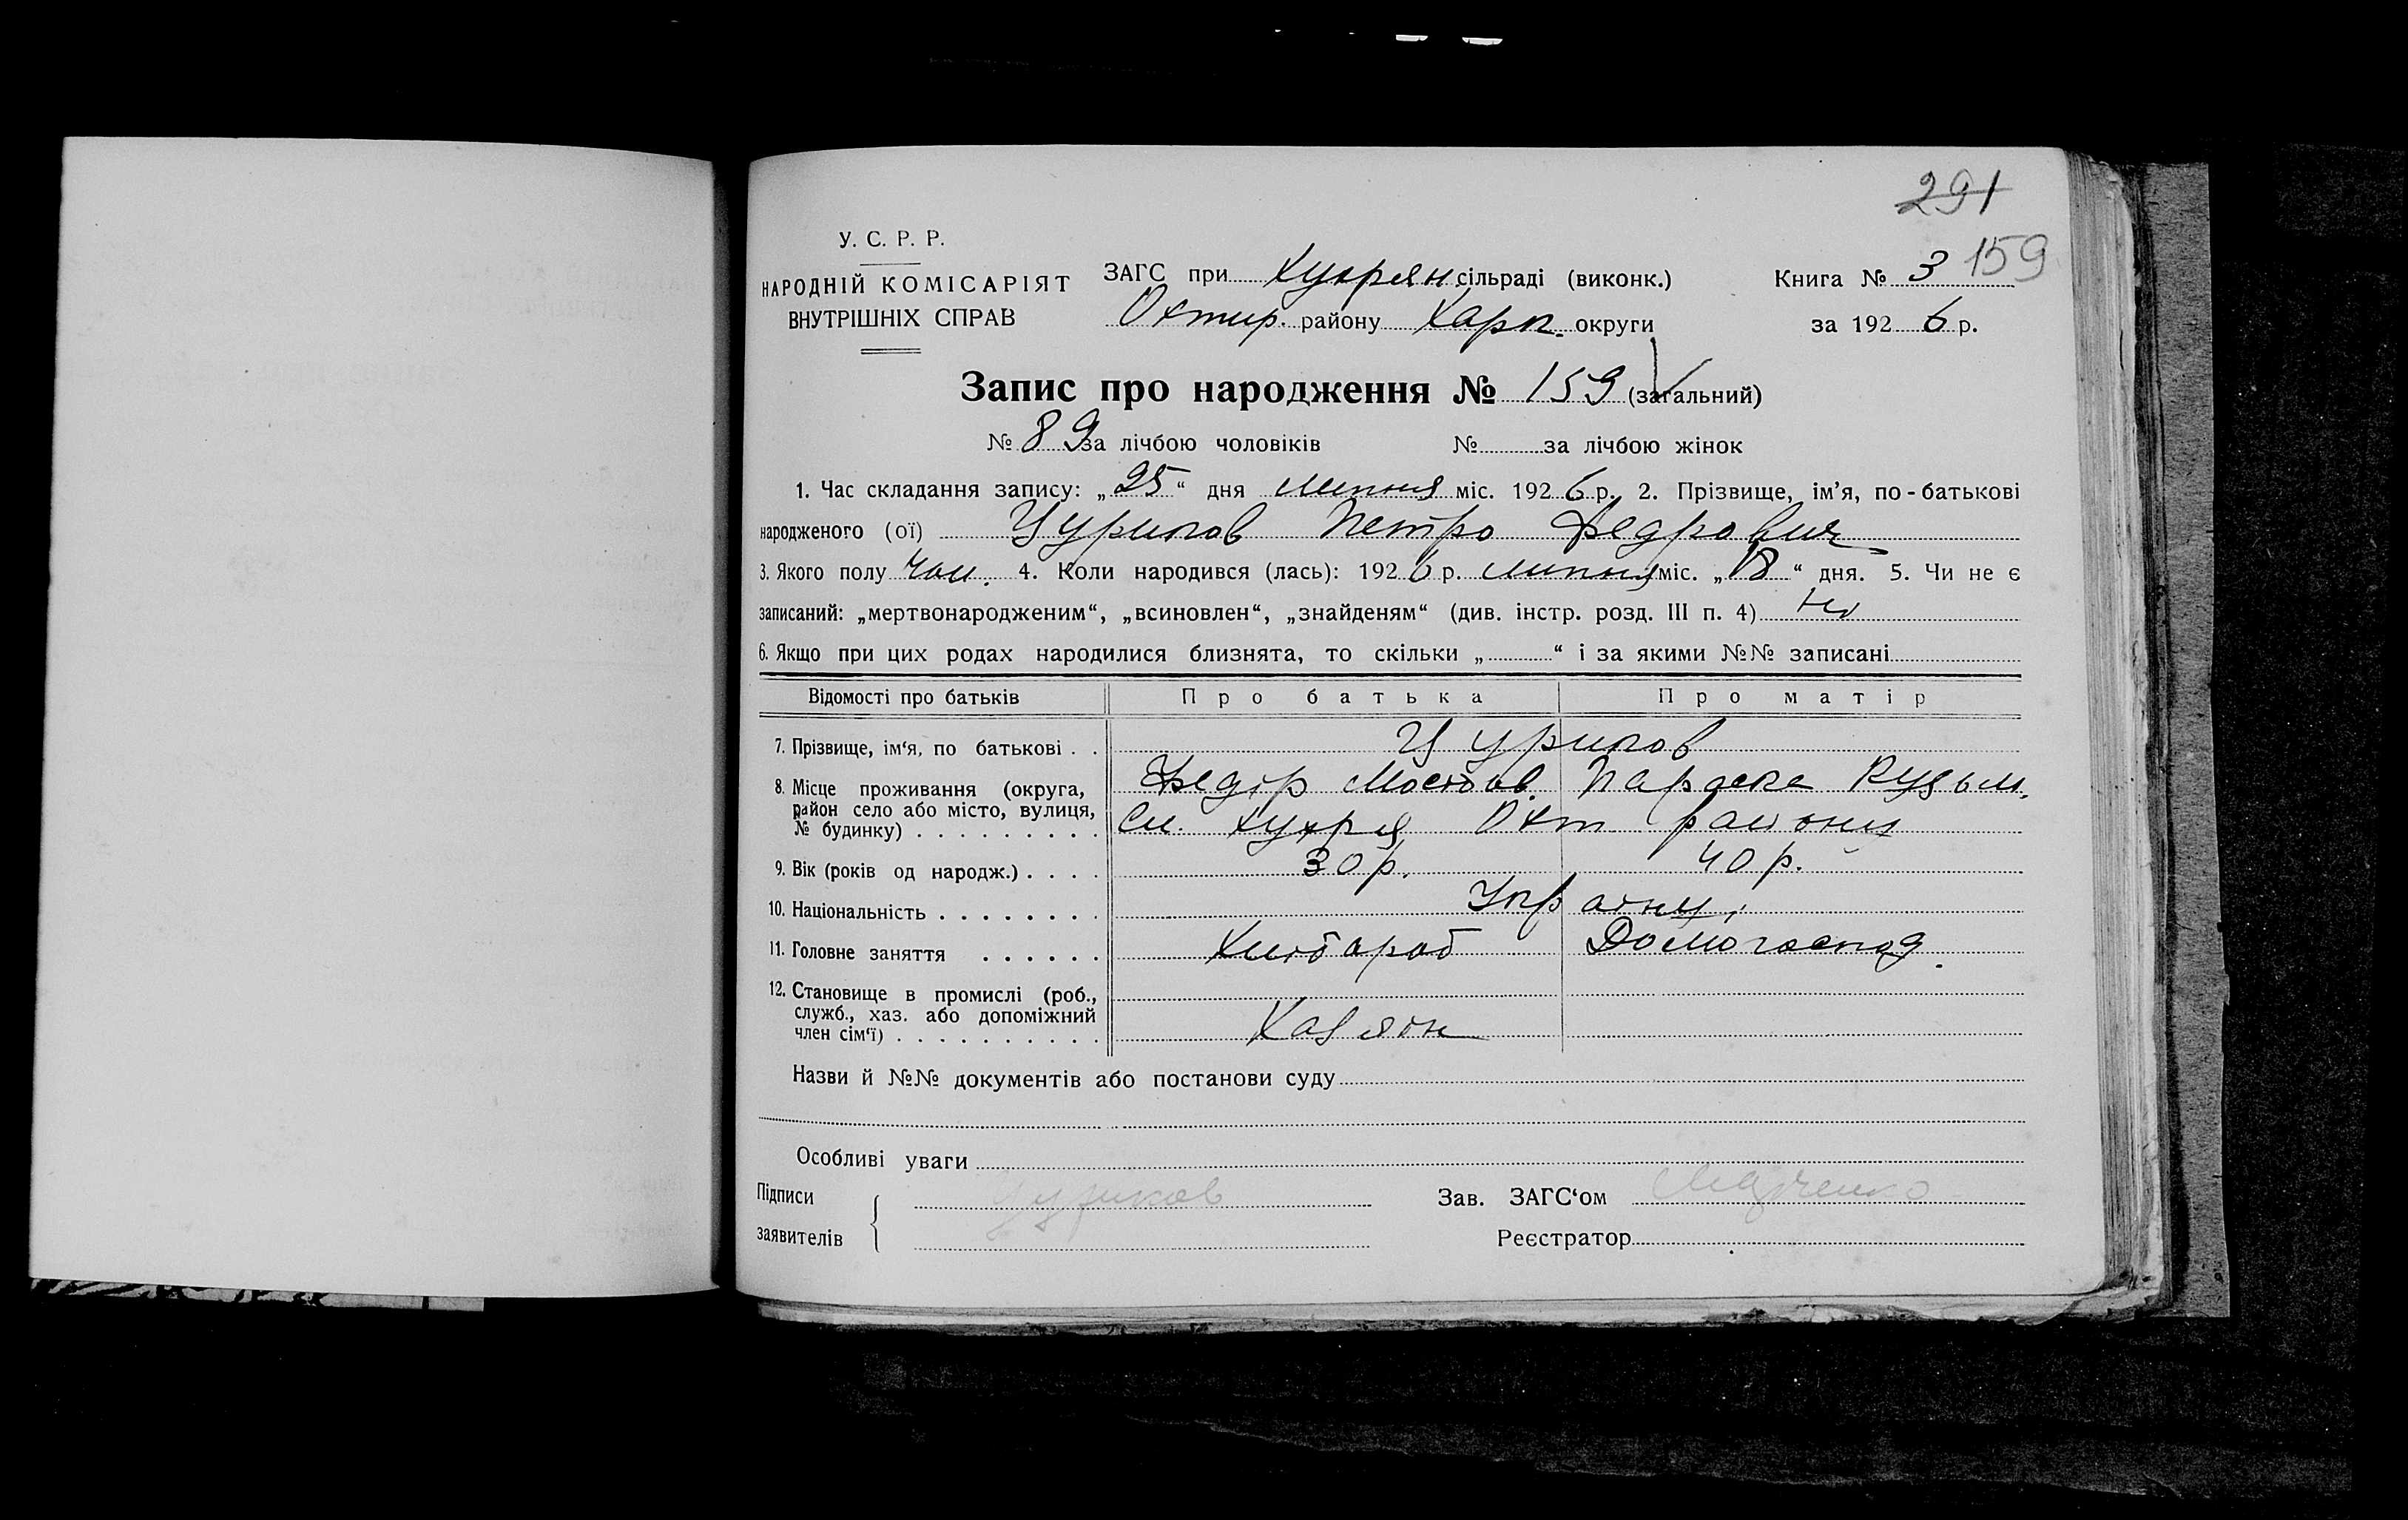 291
159
У. С. Р. Р.
НАРОДНІЙ КОМІСАРІЯТ
ВНУТРІШНІХ СПРАВ
ЗАГС при Хухрян сільраді (виконк.)
Охтир. району Харк. округи
Книга № 3
за 1926 р.
Запис про народження № 159 (загальний)
№ 89 за лічбою чоловіків № за лічбою жінок
1. Час складання запису: „25“ дня липня міс. 1926 р. 2. Прізвище, ім’я, по-батькові
народженого (ої) Цуриков Петро Федрович
3. Якого полу чол. 4. Коли народився (лась): 1926 р. липня міс. „18“ дня. 5. Чи не є
записаний: „мертвонародженим“, „всиновлен“, „знайденям“ (див. інстр. розд. III п. 4) ні
6. Якщо при цих родах народилися близнята, то скільки „ “ і за якими №№ записані
Відомості про батьків Про батька Про матір
7. Прізвище, ім‘я, по батькові . . Цуриков
Федір Параска Кузьм.
8. Місце проживання (округа,
район село або місто, вулиця,
№ будинку) . . . . . . . . . Сл. Хухря Охт району
9. Вік (років од народж.) . . . . 30 р. 40 р.
10. Національність . . . . . . . . Україн.
11. Головне заняття . . . . . . Хлібароб Домогоспод.
12. Становище в промислі (роб.,
служб., хаз. або допоміжний
член сім‘ї) . . . . . . . . . . Хазяїн
Назви й №№ документів або постанови суду
Особливі уваги
Підписи
заявителів
Цуриков
Зав. ЗАГС‘ом
Реєстратор